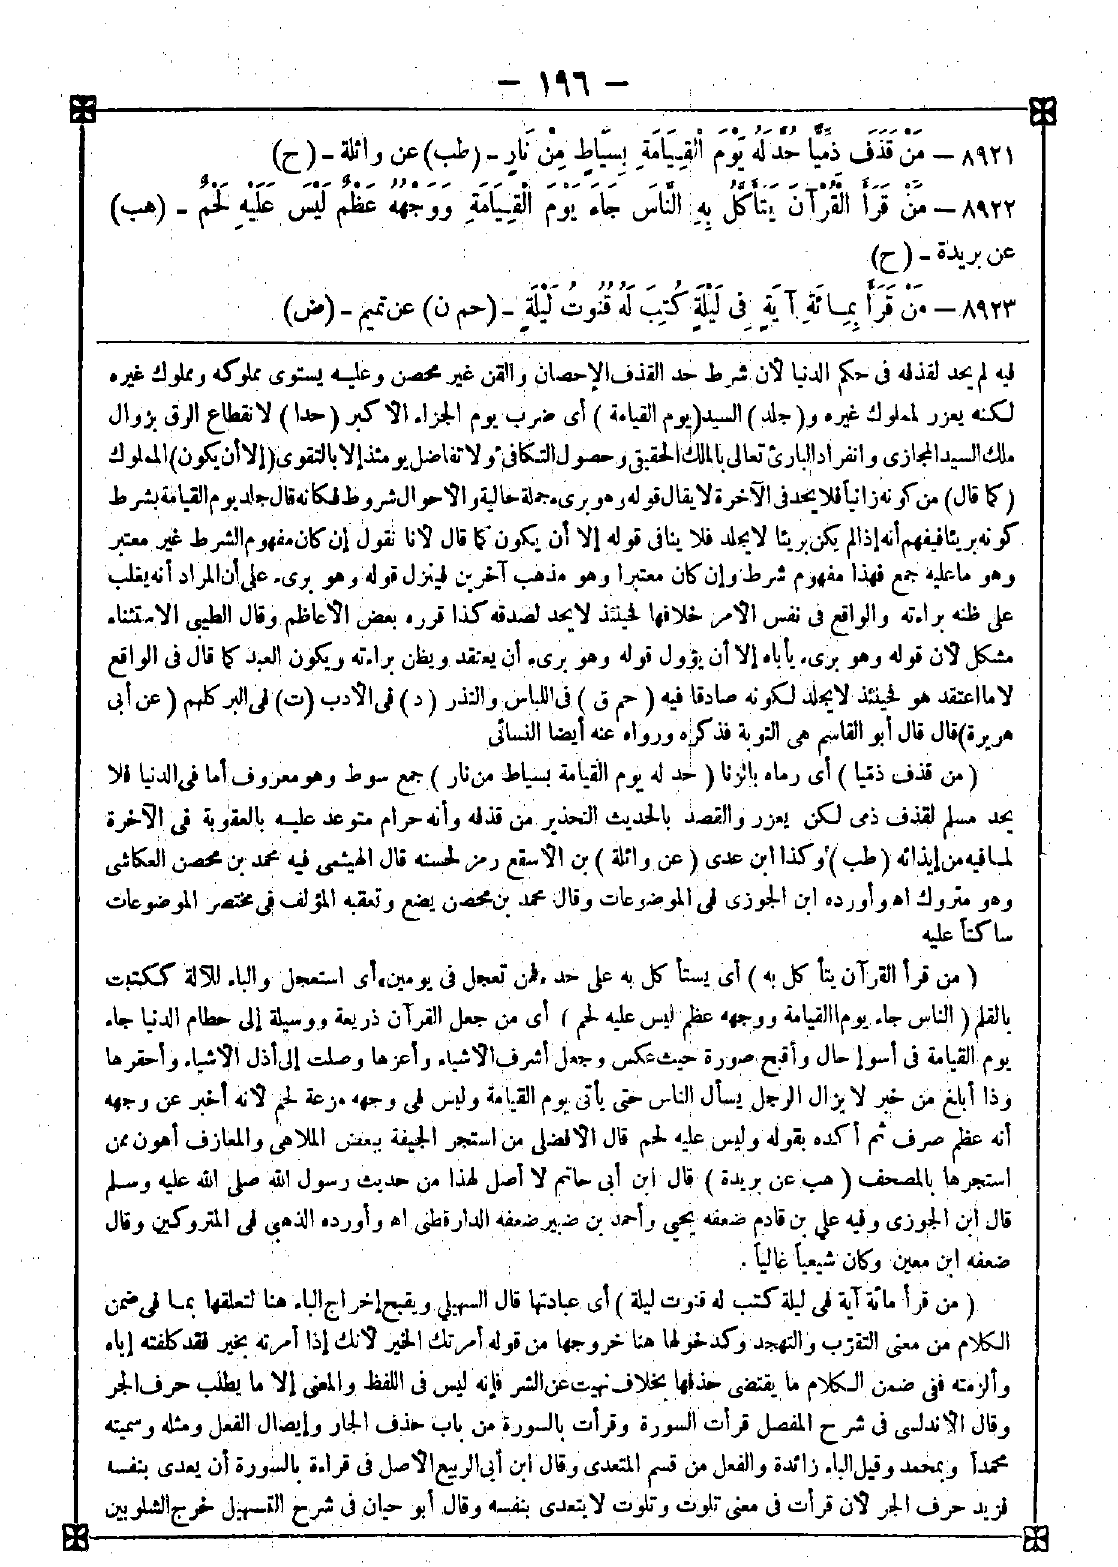 – ١٩٦ –
٨٩٢١ – مَنْ قَذَفَ ذِمِّيًّا حُدَّ لَهُ يَوْمَ الْقِيَامَةِ بِسِيَاطٍ مِنْ نَارٍ – (طب) عن واثلة – (ح)
٨٩٢٢ – مَنْ قَرَأَ الْقُرْآنَ يَتَأَكَّلُ بِهِ النَّاسَ جَاءَ يَوْمَ الْقِيَامَةِ وَوَجْهُهُ عَظْمٌ لَيْسَ عَلَيْهِ لَحْمٌ – (هب)
عن بريدة – (ح)
٨٩٢٣ – مَنْ قَرَأَ بِمِائَةِ آيَةٍ فِى لَيْلَةٍ كُتِبَ لَهُ قُنُوتُ لَيْلَةٍ – (حم ن) عن تميم – (ض)
فيه لم يحد لقذفه فى حكم الدنيا لأن شرط حد القذف الإحصان والقن غير محصن وعليه يستوى مملوكه ومملوك غيره
لكنه يعزر لمملوك غيره و(جلد) السيد (يوم القيامة) أى ضرب يوم الجزاء الأكبر (حدا) لانقطاع الرق بزوال
ملك السيد المجازى وانفراد البارئ تعالى بالملك الحقيقى وحصول التكافئ ولا تفاضل يومئذ إلا بالتقوى (إلا أن يكون) المملوك
(كما قال) من كونه زانيا فلا يحد فى الآخرة لايقال قوله وهو برىء جملة حالية والأحوال شروط فكأنه قال جلد يوم القيامة بشرط
كونه بريئا فيفهم أنه إذا لم يكن بريئا لا يجلد فلا ينافى قوله إلا أن يكون كما قال لأنا نقول إن كان مفهوم الشرط غير معتبر
وهو ماعليه جمع فهذا مفهوم شرط وإن كان معتبرا وهو مذهب آخرين فينزل قوله وهو برىء على أن المراد أنه يقلب
على ظنه براءته والواقع فى نفس الأمر خلافها فحينئذ لايحد لصدقه كذا قرره بعض الأعاظم وقال الطيبى الاستثناء
مشكل لأن قوله وهو برىء يأباه إلا أن يؤول قوله وهو برىء أن يعتقد ويظن براءته ويكون العبد كما قال فى الواقع
لا مااعتقد هو فحينئذ لايجلد لكونه صادقا فيه (حم ق) فى اللباس والنذر (د) فى الأدب (ت) فى البر كلهم (عن أبى
هريرة) قال قال أبو القاسم هى التوبة فذكره ورواه عنه أيضا النسائى
(من قذف ذميا) أى رماه بالزنا (حد له يوم القيامة بسياط من نار) جمع سوط وهو معروف أما فى الدنيا فلا
يحد مسلم لقذف ذمى لكن يعزر والقصد بالحديث التحذير من قذفه وأنه حرام متوعد عليه بالعقوبة فى الآخرة
لما فيه من إيذائه (طب) وكذا ابن عدى (عن واثلة) بن الأسقع رمز لحسنه قال الهيثمى فيه محمد بن محصن العكاشى
وهو متروك اه وأورده ابن الجوزى فى الموضوعات وقال محمد بن محصن يضع وتعقبه المؤلف فى مختصر الموضوعات
ساكتاً عليه
(من قرأ القرآن يتأكل به) أى يستأكل به على حد «فمن تعجل فى يومين» أى استعجل والباء للآلة ككتبت
بالقلم (الناس جاء يوم القيامة ووجهه عظم ليس عليه لحم) أى من جعل القرآن ذريعة ووسيلة إلى حطام الدنيا جاء
يوم القيامة فى أسوإ حال وأقبح صورة حيث عكس وجعل أشرف الأشياء وأعزها وصلت إلى أذل الأشياء وأحقرها
وذا أبلغ من خبر لا يزال الرجل يسأل الناس حتى يأتى يوم القيامة وليس فى وجهه مزعة لحم لأنه أخبر عن وجهه
أنه عظم صرف ثم أكده بقوله وليس عليه لحم قال الأفضلى من استجر الجيفة ببعض الملاهى والمعازف أهون ممن
استجرها بالمصحف (هب عن بريدة) قال ابن أبى حاتم لا أصل لهذا من حديث رسول الله صلى الله عليه وسلم
قال ابن الجوزى وفيه على بن قادم ضعفه يحيى وأحمد بن ضبير ضعفه الدارقطنى اه وأورده الذهبى فى المتروكين وقال
ضعفه ابن معين وكان شيعياً غالياً .
(من قرأ مائة آية فى ليلة كتب له قنوت ليلة) أى عبادتها قال السهيلى ويقبح إخراج الباء هنا لتعلقها بما فى ضمن
الكلام من معنى التقرّب والتهجد وكدخولها هنا خروجها من قوله أمرتك الخير لأنك إذا أمرته بخير فقد كلفته إياه
وألزمته ففى ضمن الكلام ما يقتضى حذفها بخلاف نهيت عن الشر فإنه ليس فى اللفظ والمعنى إلا ما يطلب حرف الجر
وقال الأندلسى فى شرح المفصل قرأت السورة وقرأت بالسورة من باب حذف الجار وإيصال الفعل ومثله وسميته
محمداً وبمحمد وقيل الباء زائدة والفعل من قسم المتعدى وقال ابن أبى الربيع الأصل فى قراءة بالسورة أن يعدى بنفسه
فزيد حرف الجر لأن قرأت فى معنى تلوت وتلوت لايتعدى بنفسه وقال أبو حيان فى شرح التسهيل خرج الشلوبين